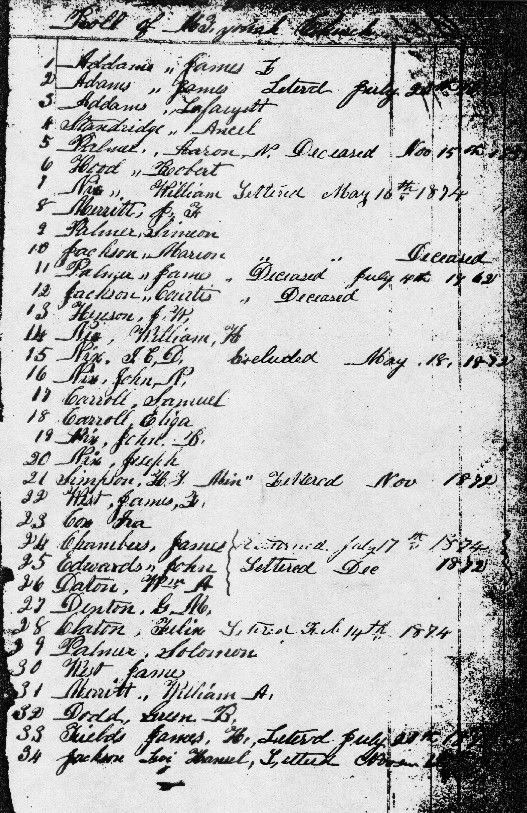 Roll of Mt. Zorah Church
1 Addams " James F
2 Adams " James Leterd July 28th
3 Addams " Lafayett
4 Standridge " Ancel
5 Palmer, " Aaron, N. Deceased Nov 15th
6 Hood " Robert
7 Nix " William Lettered May 16th 1874
8 Merritt, J. F
9 Palmer, Simeon
10 Jackson " Marion " " Deceased
11 Palmer " James " Deceased July 4th 1862
12 Jackson " Curtis " Deceased
13 Henson, J. W.
14 Nix, William, H
15 Nix, I. E. D. Excluded May. 18, 1872
16 Nix, John, N.
17 Carroll, Samuel
18 Carroll, Eliga
19 Nix, John. B.
20 Nix, Joseph
21 Simpson, H. F. Min" Lettered Nov 1872
22 West, James, F.
23 Cox Ira
24 Chambers, James Returned July 17th 1874
25 Edwards " John Lettered Dec 1872
26 Daton, Wm A
27 Denton, G. M.
28 Claton, Felix Leterd Feb 14th 1874
29 Palmer, Solomon
30 West James
31 Merritt " William A.
32 Dodd, Green B.
33 Fields James, H., Leterd July 28th
34 Jackson Levi Hansel, Lettered